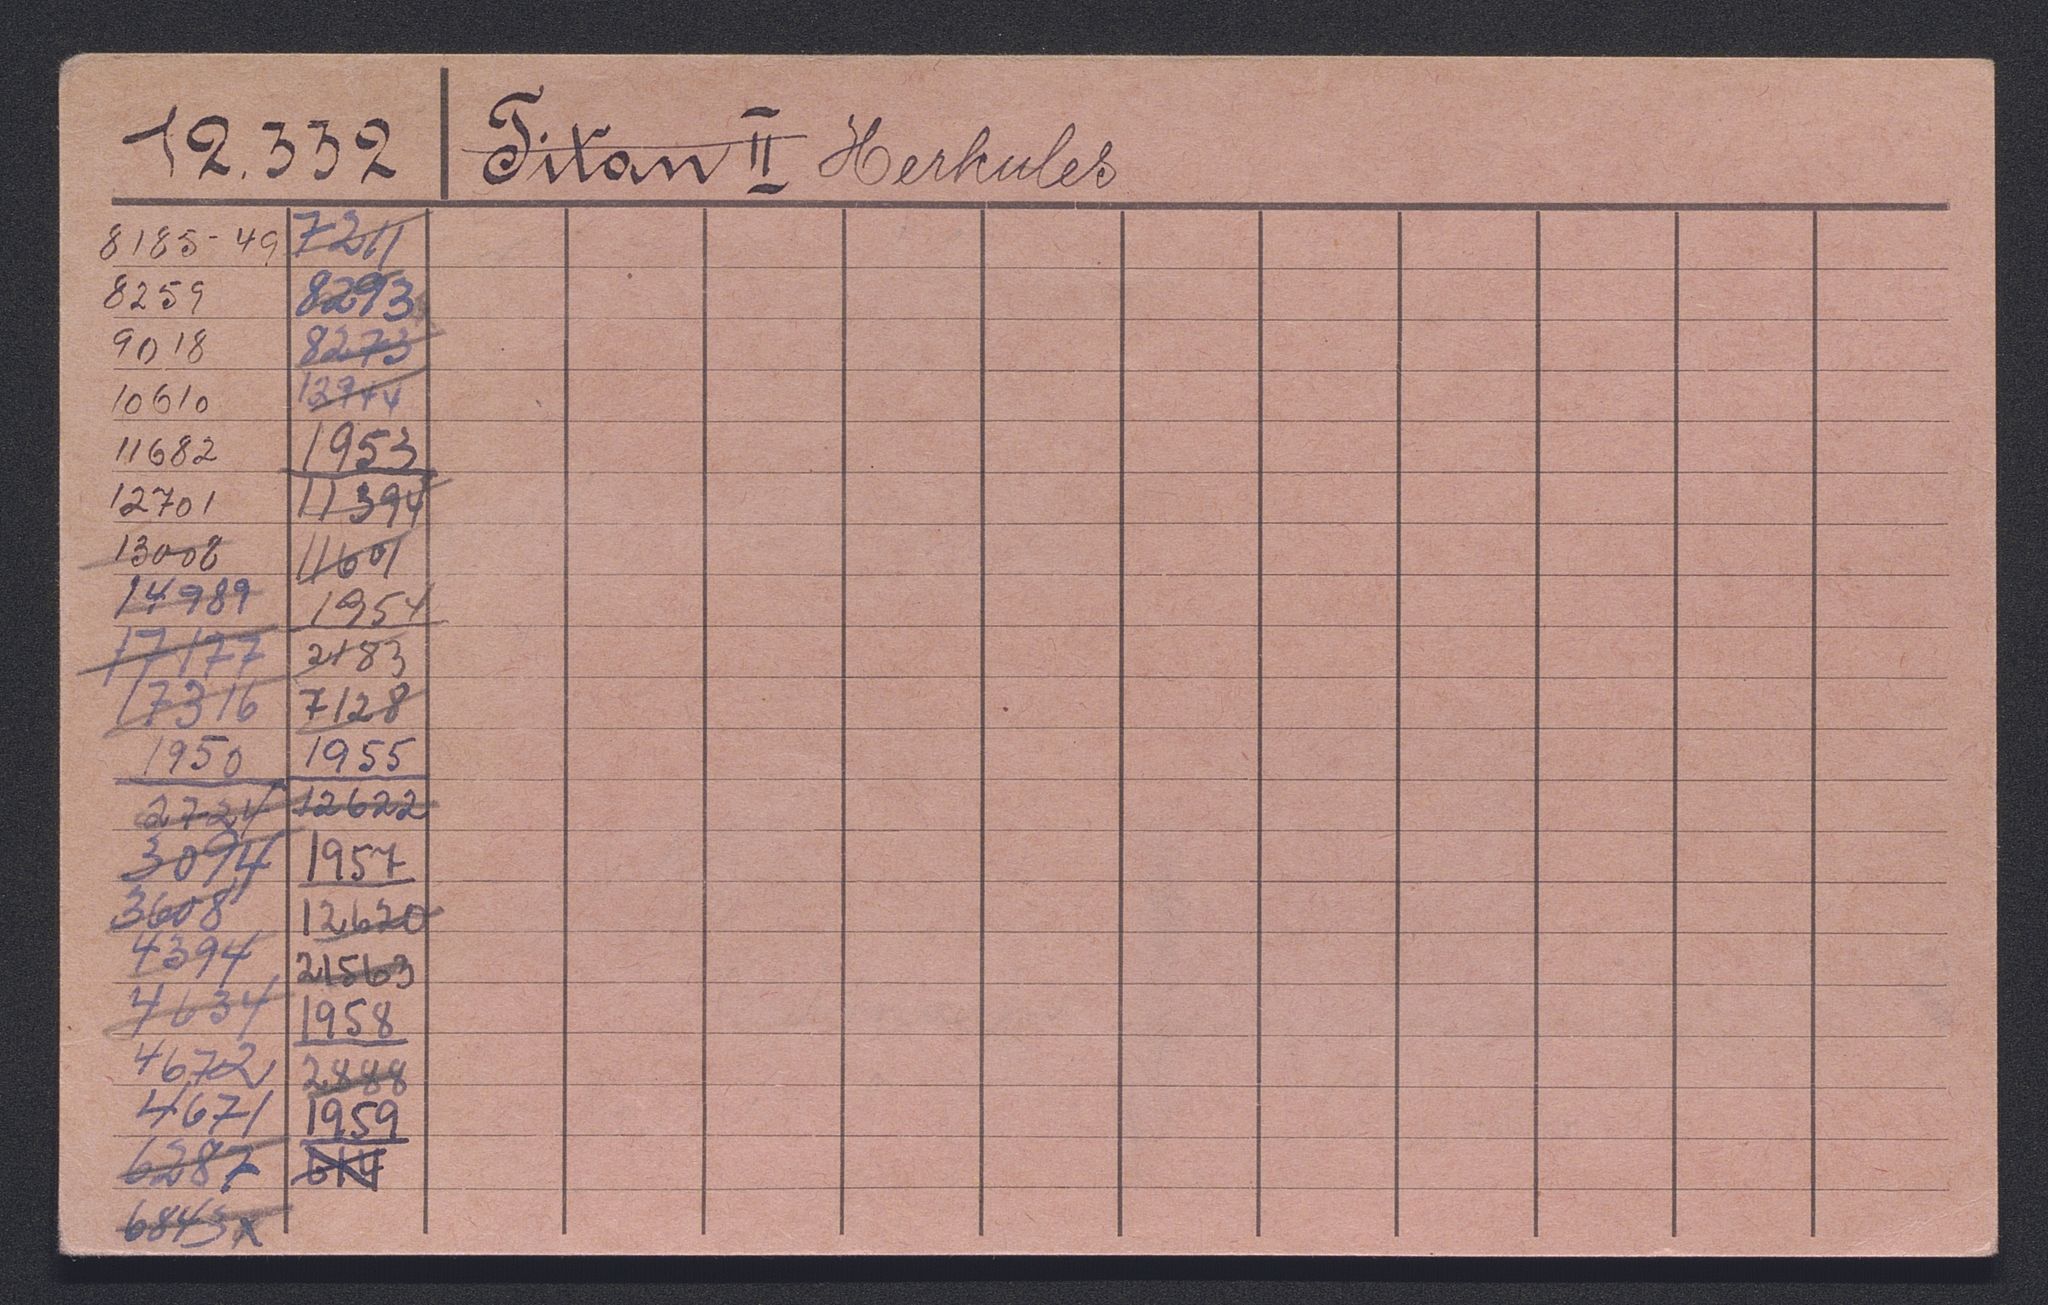 12.332 Titan II Herkules
8185-49 7211
8259 8293
9018 8273
10610 12944
11682 1953
12701 11394
13008 11601
14989 1954
17177 2183
17316 7128
1950 1955
2724 12622
3094 1957
3608 12620
4394 21563
4634 1958
4672 2888
4671 1959
6287 614
6843x